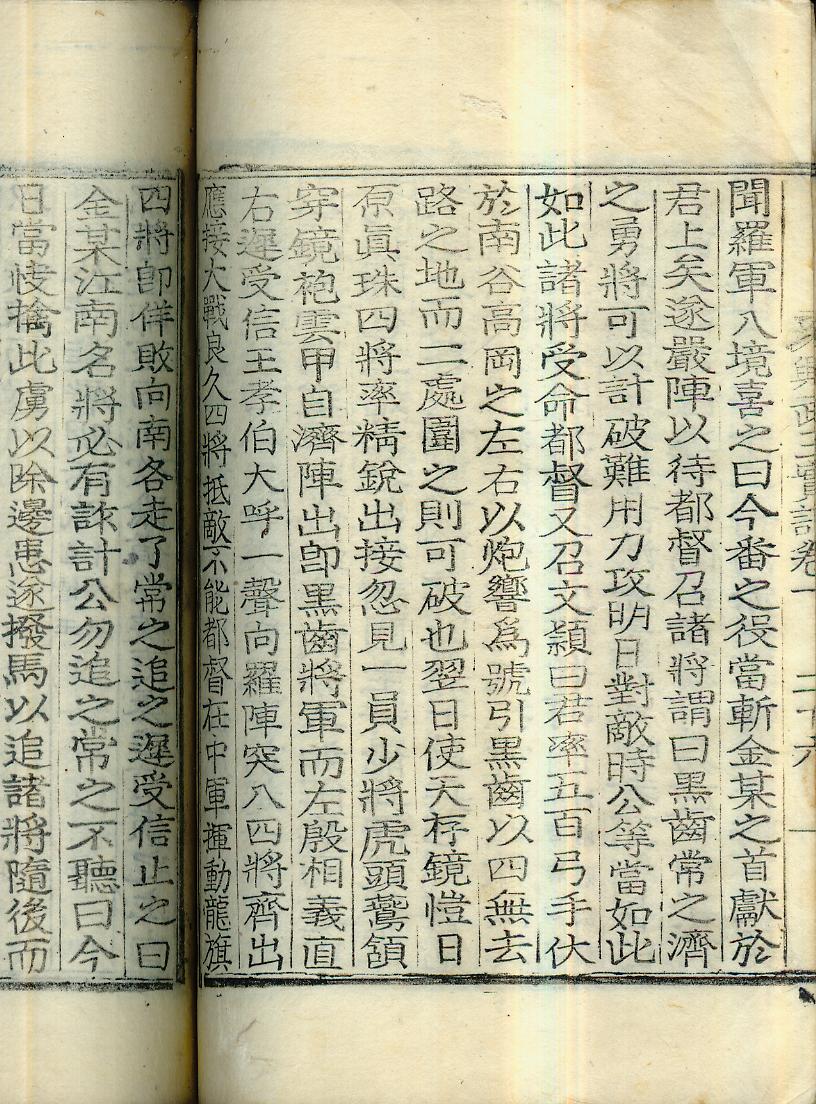 聞羅軍入境喜之曰今番之役當斬金某之首獻於
君上矣遂嚴陣以待都督召諸將謂曰黑齒常之濟
之勇將可以計破難用力攻明日對敵時公等當如此
如此諸將受命都督又召文穎曰君率五百弓手伏
於南谷高岡之左右以炮響爲號引黑齒以四無去
路之地而二處圍之則可破也翌日使天存鏡愷日
原眞珠四將率精銳出接忽見一員少將虎頭鷰頷
穿鏡袍雲甲自濟陣出卽黑齒將軍而左殷相義直
右遲受信王孝伯大呼一聲向羅陣突入四將齊出
應接大戰良久四將抵敵不能都督在中軍揮動龍旗
四將卽佯敗向南各走了常之追之遲受信止之曰
金某江南名將必有詐計公勿追之常之不聽曰今
日當悛擒此虜以除邊患遂撥馬以追諸將隨後而